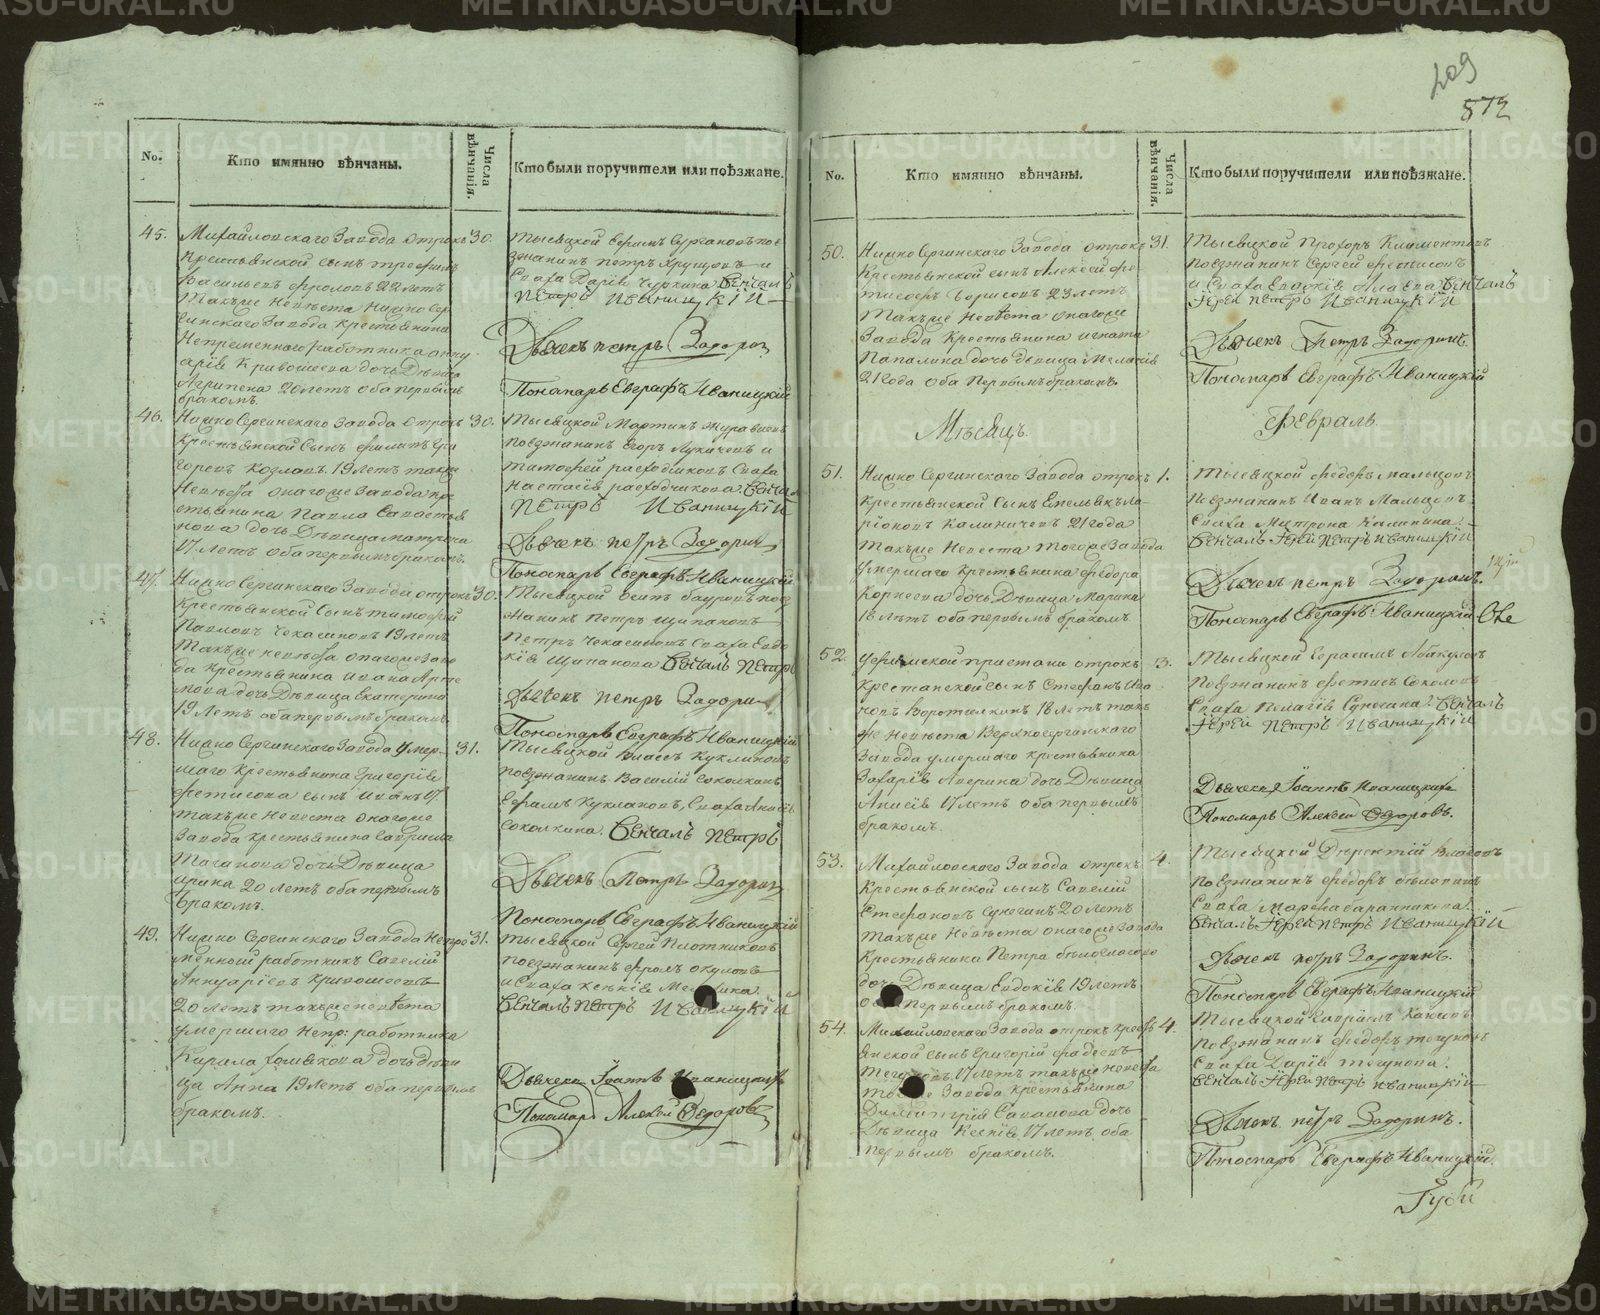 209
572
No.
Кто имянно вѣнчаны.
Числа вѣнчанія.
Кто были поручители или поѣзжане.
45.
Михайловскаго Завода отрокъ
крестьянской сынъ трофимъ
Васильевъ фроловъ 22 летъ
Такъже Невѣста Нижно Сер
гинскаго Завода крестьянина
Непременнаго работника
Кривошеева дочь Дѣвица
Агрипена 20 летъ оба первымъ
бракомъ.
30.
поѣзжанинъ петръ
Сваха Дарія Чуркина Венчалъ
Петръ Иваницкій
Дьячекъ петръ Задорин
Пономарь Евграфъ Иваницкій
46.
Нижно Сергинскаго Завода отрокъ
Крестьянской Сынъ филипъ Гри
горьевъ Козловъ 19 летъ такъже
Невѣста онагоже Завода кре
стьянина Павла
дочь Дѣвица матрена
17 летъ оба первымъ бракомъ.
30.
Тысяцкой Мартинъ Журавлевъ
поезжанинъ Егоръ Лукичевъ и
тимофей расходчиковъ Сваха
Настасія расходчикова Венчал
Петръ Иваницкій
Дьячекъ петръ Задорин
Пономарь Евграфъ Иваницкій
47.
Нижно Сергинскаго Завода отрокъ
Крестьянской Сынъ тимофей
Павловъ Чекасиновъ 19 летъ
Такъже невѣста онагоже Заво
да крестьянина ивана Арте
мова дочь Дѣвица Екатерина
19 летъ оба первымъ бракомъ
30.
Тысяцкой осипъ
жанинъ Петръ Щипановъ
Петръ Чекасиновъ Сваха Евдо
кія Щипанова Венчалъ Петръ
Дьячекъ петръ Задорин
Пономарь Евграфъ Иваницкій
48.
Нижно Сергинскаго Завода Умер-
шаго Крестьянина Григорія
Фетисова сынъ Иванъ
такъже Невеста онагоже
Завода крестьянина Гаврила
дочь Дѣвица
ирина 20 летъ оба первымъ
бракомъ.
31.
Тысяцкой Власъ Куклиновъ
поезжанинъ Василій Соколкинъ
Сваха
Соколкина. Венчалъ Петръ
Дьячекъ Петръ Задорин
Пономарь Евграфъ Иваницкій
49.
Нижно Сергинскаго Завода Непре
менной работникъ Савелій
Кривошеевъ
20 летъ такъже невѣста
умершаго Непр: работника
Кирила Хомякова дочь дѣви
ца Анна 19 летъ оба первымъ
бракомъ.
31.
тысяцкой Сергей Плотниковъ
поезжанинъ фролъ
и Сваха Ксенія
Венчалъ Петръ Иваницкій
Дьячекъ Іоаннъ Иваницкій
Пономарь Алексей Федоровъ
No.
Кто имянно вѣнчаны.
Числа вѣнчанія.
Кто были поручители или поѣзжане.
50.
Нижно Сергинскаго Завода отрокъ
Крестьянской сынъ Алексей
Борисовъ 23 летъ
Такъже Невѣста онагоже
Завода Крестьянина игната
Папалина дочь девица Меланія
21 года оба Первымъ бракомъ.
31.
Тысяцкой Прохоръ Климентьевъ
Поезжанинъ Сергей
и Сваха Евдокія Венчалъ
Іерей Петръ Иваницкій
Дьячекъ Петръ Задоринъ.
Пономарь Евграфъ Иваницкій
Мѣсяцъ.
Февраль.
51.
Нижно Сергинскаго Завода отрокъ
Крестьянской Сынъ Емельянъ Ла
ріоновъ Калиничевъ 21 года
Такъже Невеста тогоже Завода
Умершаго крестьянина федора
Корнеева дочь Дѣвица Марина
18 летъ оба первымъ бракомъ
1.
Тысяцкой федоръ мальцовъ
Поезжанинъ Иванъ Мальцовъ
Сваха Матрона Калинина.
Венчалъ Іерей Петръ Иваницкій
Дьячекъ петръ Задоринъ.
Пономарь Евграфъ Иваницкій
52.
Уфимской пристани отрокъ
крестьянской сынъ Стефанъ Ива
новъ Воротилкинъ 18 летъ такъ
же Невѣста Верхносергинскаго
Завода умершаго крестьянина
Захарія Аверина дочь Дѣвица
Анисія 17 летъ оба первымъ
бракомъ.
3.
Тысяцкой Герасимъ Абакумовъ
Поезжанинъ фетисъ Соколовъ
Сваха Пелагія Сунегина. Венчалъ
Іерей Петръ Иваницкій
Дьячекъ Іоаннъ Иваницкій
Пономарь Алексей Федоровъ.
53.
Михайловскаго Завода отрокъ
Крестьянской сынъ Савелій
Стефановъ Сунегинъ 20 летъ
такъже Невѣста онагоже завода
Крестьянина Петра
дочь Дѣвица Евдокія 19 летъ
оба первымъ бракомъ.
4.
Тысяцкой Власовъ
поезжанинъ федоръ
Сваха Марфа баранникова.
Венчалъ Іерей Петръ Иваницкій
Дьячекъ петръ Задоринъ.
Пономарь Евграфъ Иваницкій
54.
Михайловскаго Завода отрокъ кресть
янской сынъ Григорій фадеевъ
17 летъ такъже невеста
тогоже Завода крестьянина
Димитрія дочь
Дѣвица Ксенія 17 летъ оба
первымъ бракомъ.
4.
Тысяцкой Гаврилъ
Поезжанинъ федоръ
Сваха Дарія
Венчалъ Іерей Петръ Иваницкій
Дьячекъ петръ Задоринъ.
Пономарь Евграфъ Иваницкій.
METRIKI.GASO-URAL.RU